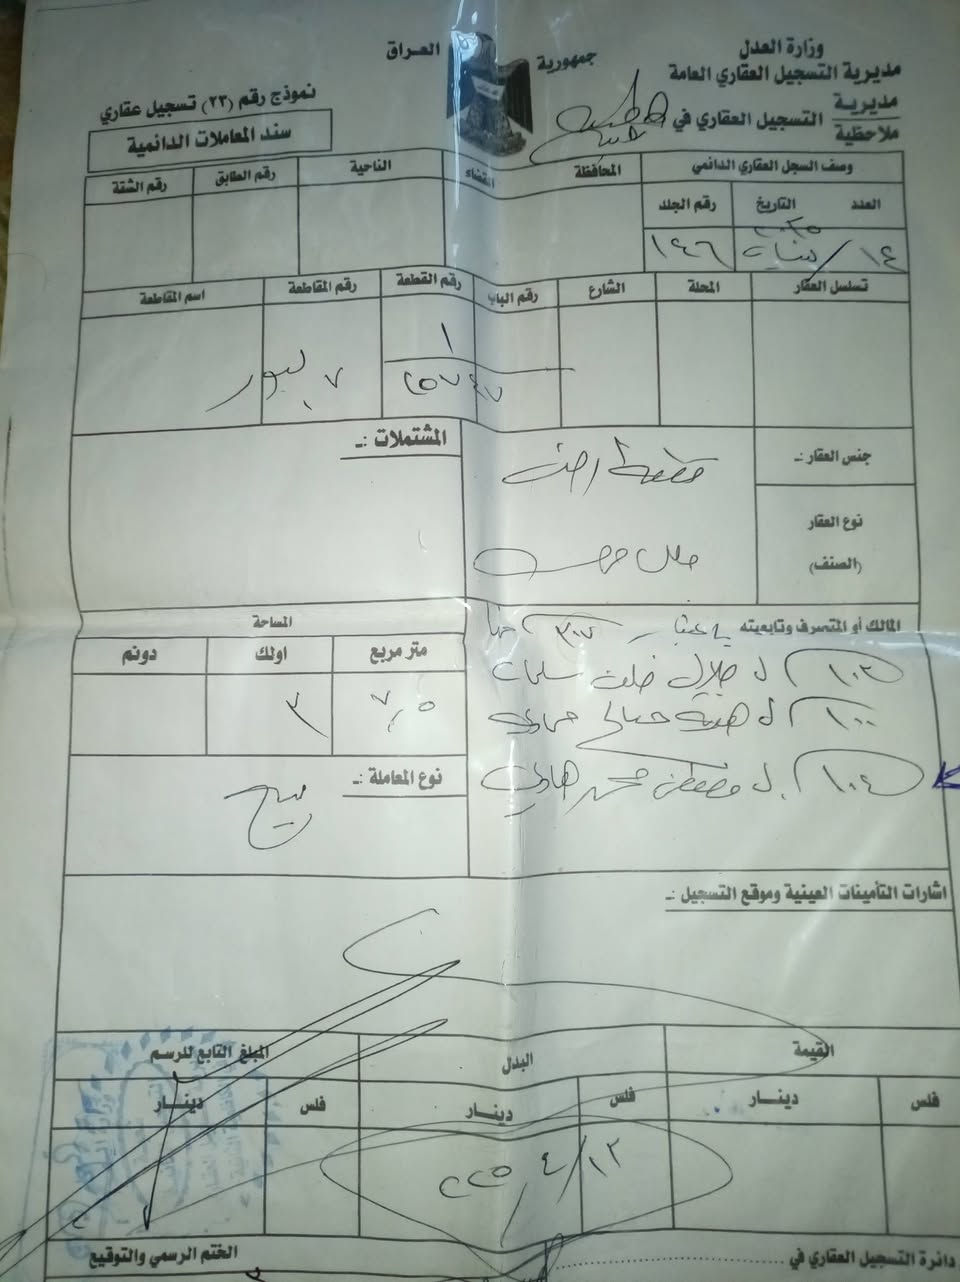 جمهورية العراق
وزارة العدل
مديرية التسجيل العقاري العامة
مديرية
ملاحظية
التسجيل العقاري في
نموذج رقم (٢٣) تسجيل عقاري
سند المعاملات الدائمية
وصف السجل العقاري الدائمي
المحافظة
القضاء
الناحية
رقم الطابق
رقم الشقة
العدد
التاريخ
رقم الجلد
١٤/
١٤٦
تسلسل العقار
المحلة
الشارع
رقم الباب
رقم القطعة
رقم المقاطعة
اسم المقاطعة
١
٢٥٧٤٧
٧
جنس العقار :ـ
المشتملات :ـ
نوع العقار
(الصنف)
ملك صرف
المالك أو المتصرف وتابعيته
٣٠٧
١٠٣
ل جلال خلف سلمان
١٠٠
١٠٤
ل مصطفى محمد هادي
المساحة
متر مربع
اولك
دونم
٧,٥
٣
نوع المعاملة :ـ
بيع
اشارات التأمينات العينية وموقع التسجيل :ـ
القيمة
البدل
المبلغ التابع للرسم
فلس
دينار
فلس
دينار
فلس
دينار
١٢/٤
دائرة التسجيل العقاري في
الختم الرسمي والتوقيع